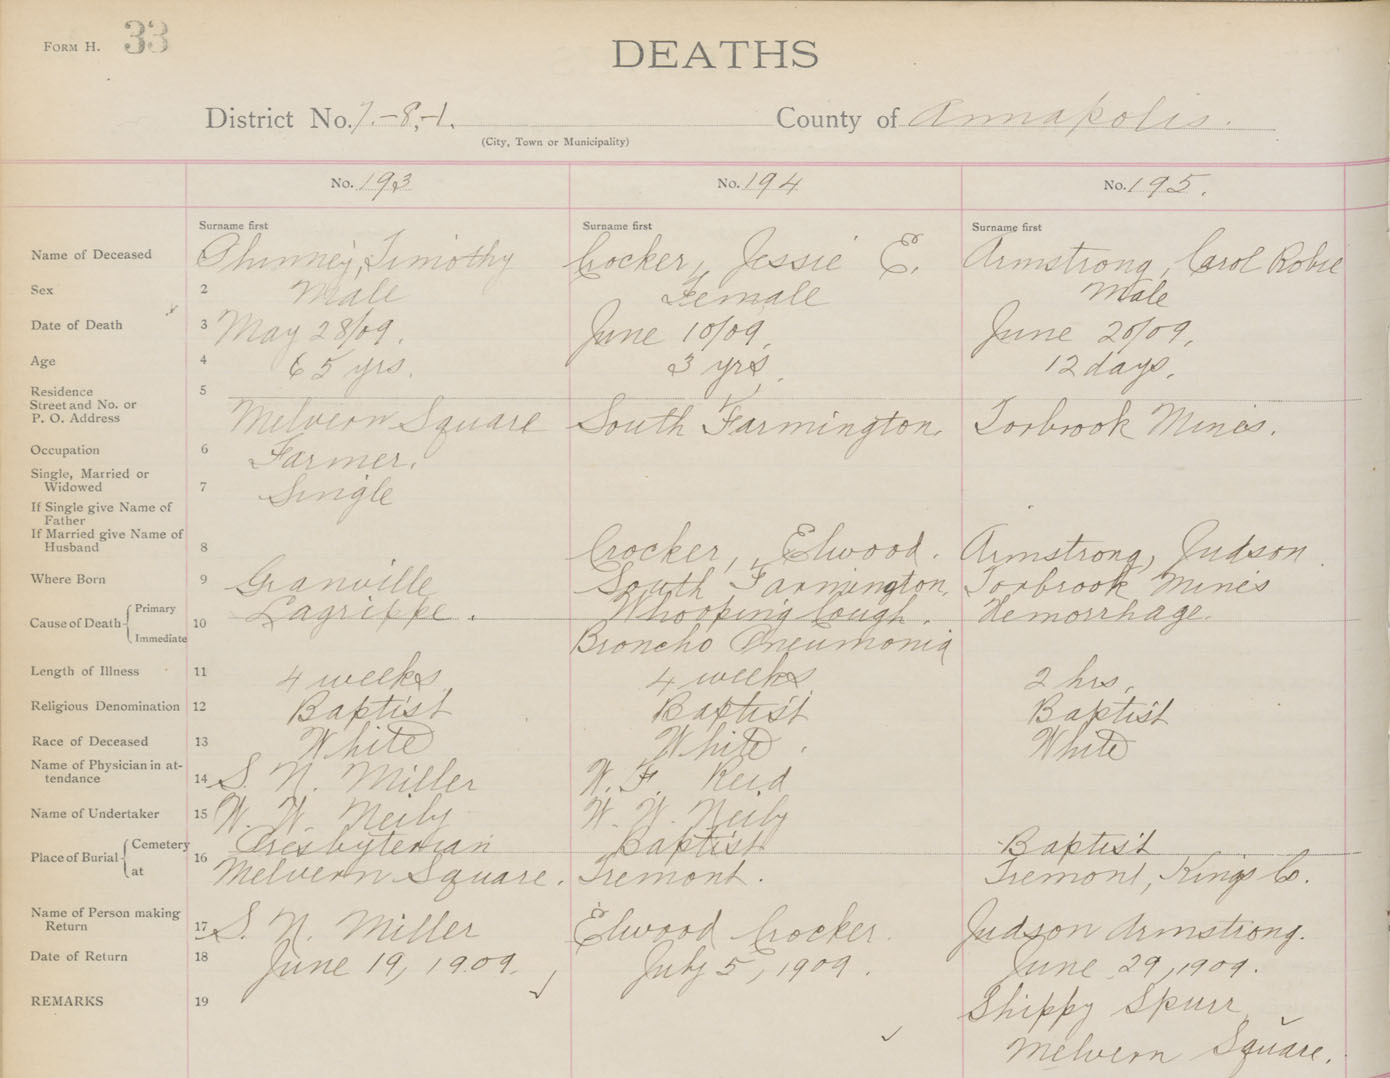 FORM H. 33
DEATHS
District No. 7.-8,-1. County of Annapolis.
(City, Town or Municipality)
No. 193 No. 194 No. 195.
Surname first Surname first Surname first
Name of Deceased Phinney, Timothy Cocker, Jessie E. Armstrong, Carol Robie
Sex 2 Male Female Male
Date of Death 3 May 28/09. June 10/09. June 20/09.
Age 4 65 yrs. 3 yrs. 12 days.
Residence 5
Street and No. or
P. O. Address Melvern Square South Farmington. Torbrook Mines.
Occupation 6 Farmer.
Single, Married or
Widowed 7 Single
If Single give Name of
Father
If Married give Name of
Husband 8 Crocker, Elwood. Armstrong, Judson
Where Born 9 Granville South Farmington, Torbrook Mines
Cause of Death Primary 10 Lagrippe. Whooping Cough. Hemorrhage.
Immediate Broncho Pneumonia
Length of Illness 11 4 weeks 4 weeks 2 hrs.
Religious Denomination 12 Baptist Baptist Baptist
Race of Deceased 13 White White. White
Name of Physician in at-
tendance 14 S. N. Miller W. F. Reid
Name of Undertaker 15 W. W. Neily W. W. Neily
Place of Burial Cemetery 16 Presbyterian Baptist Baptist
at Melvern Square. Tremont. Tremont, Kings Co.
Name of Person making
Return 17 S. N. Miller Elwood Crocker. Judson Armstrong.
Date of Return 18 June 19, 1909. July 5, 1909. June 29, 1909.
REMARKS 19 Shippy Spurr
Melvern Square.